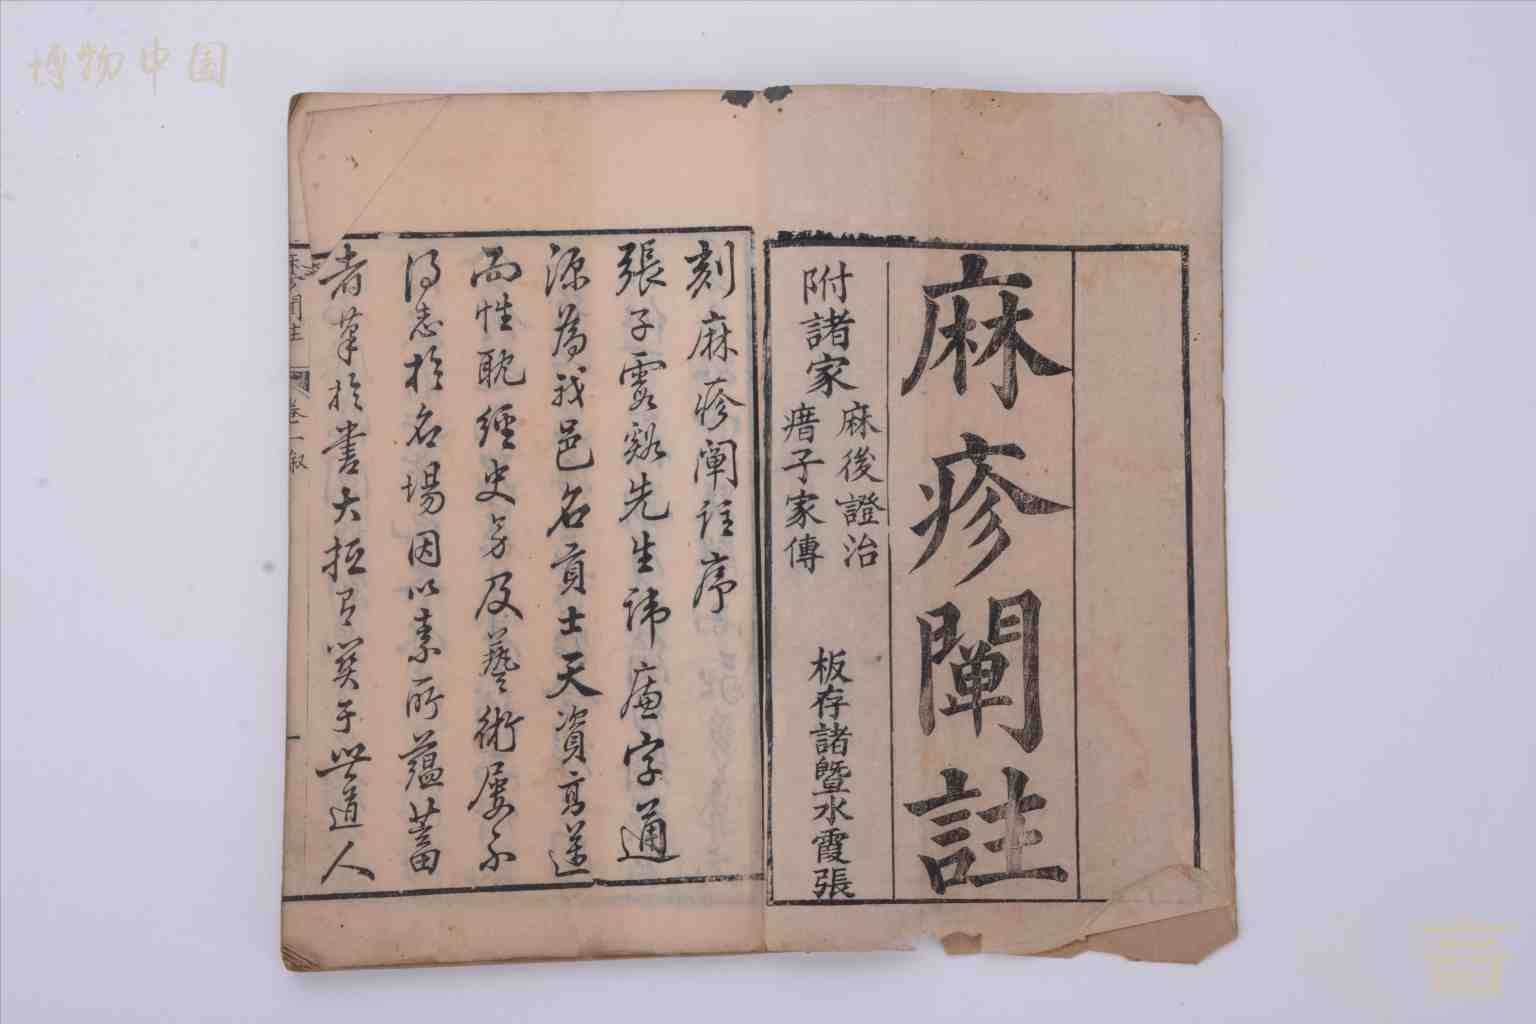 博物中国
麻疹闡註
附諸家
麻後證治
瘄子家傳
板存諸暨水霞張
刻麻疹闡註序
張子霞谿先生諱廉字通
源為我邑名貢士天資高邁
而性耽經史旁及藝術屢不
得志於名場因以素所蘊蓄
者筆於書大抵有關于世道人
麻疹闡註 卷一 叙